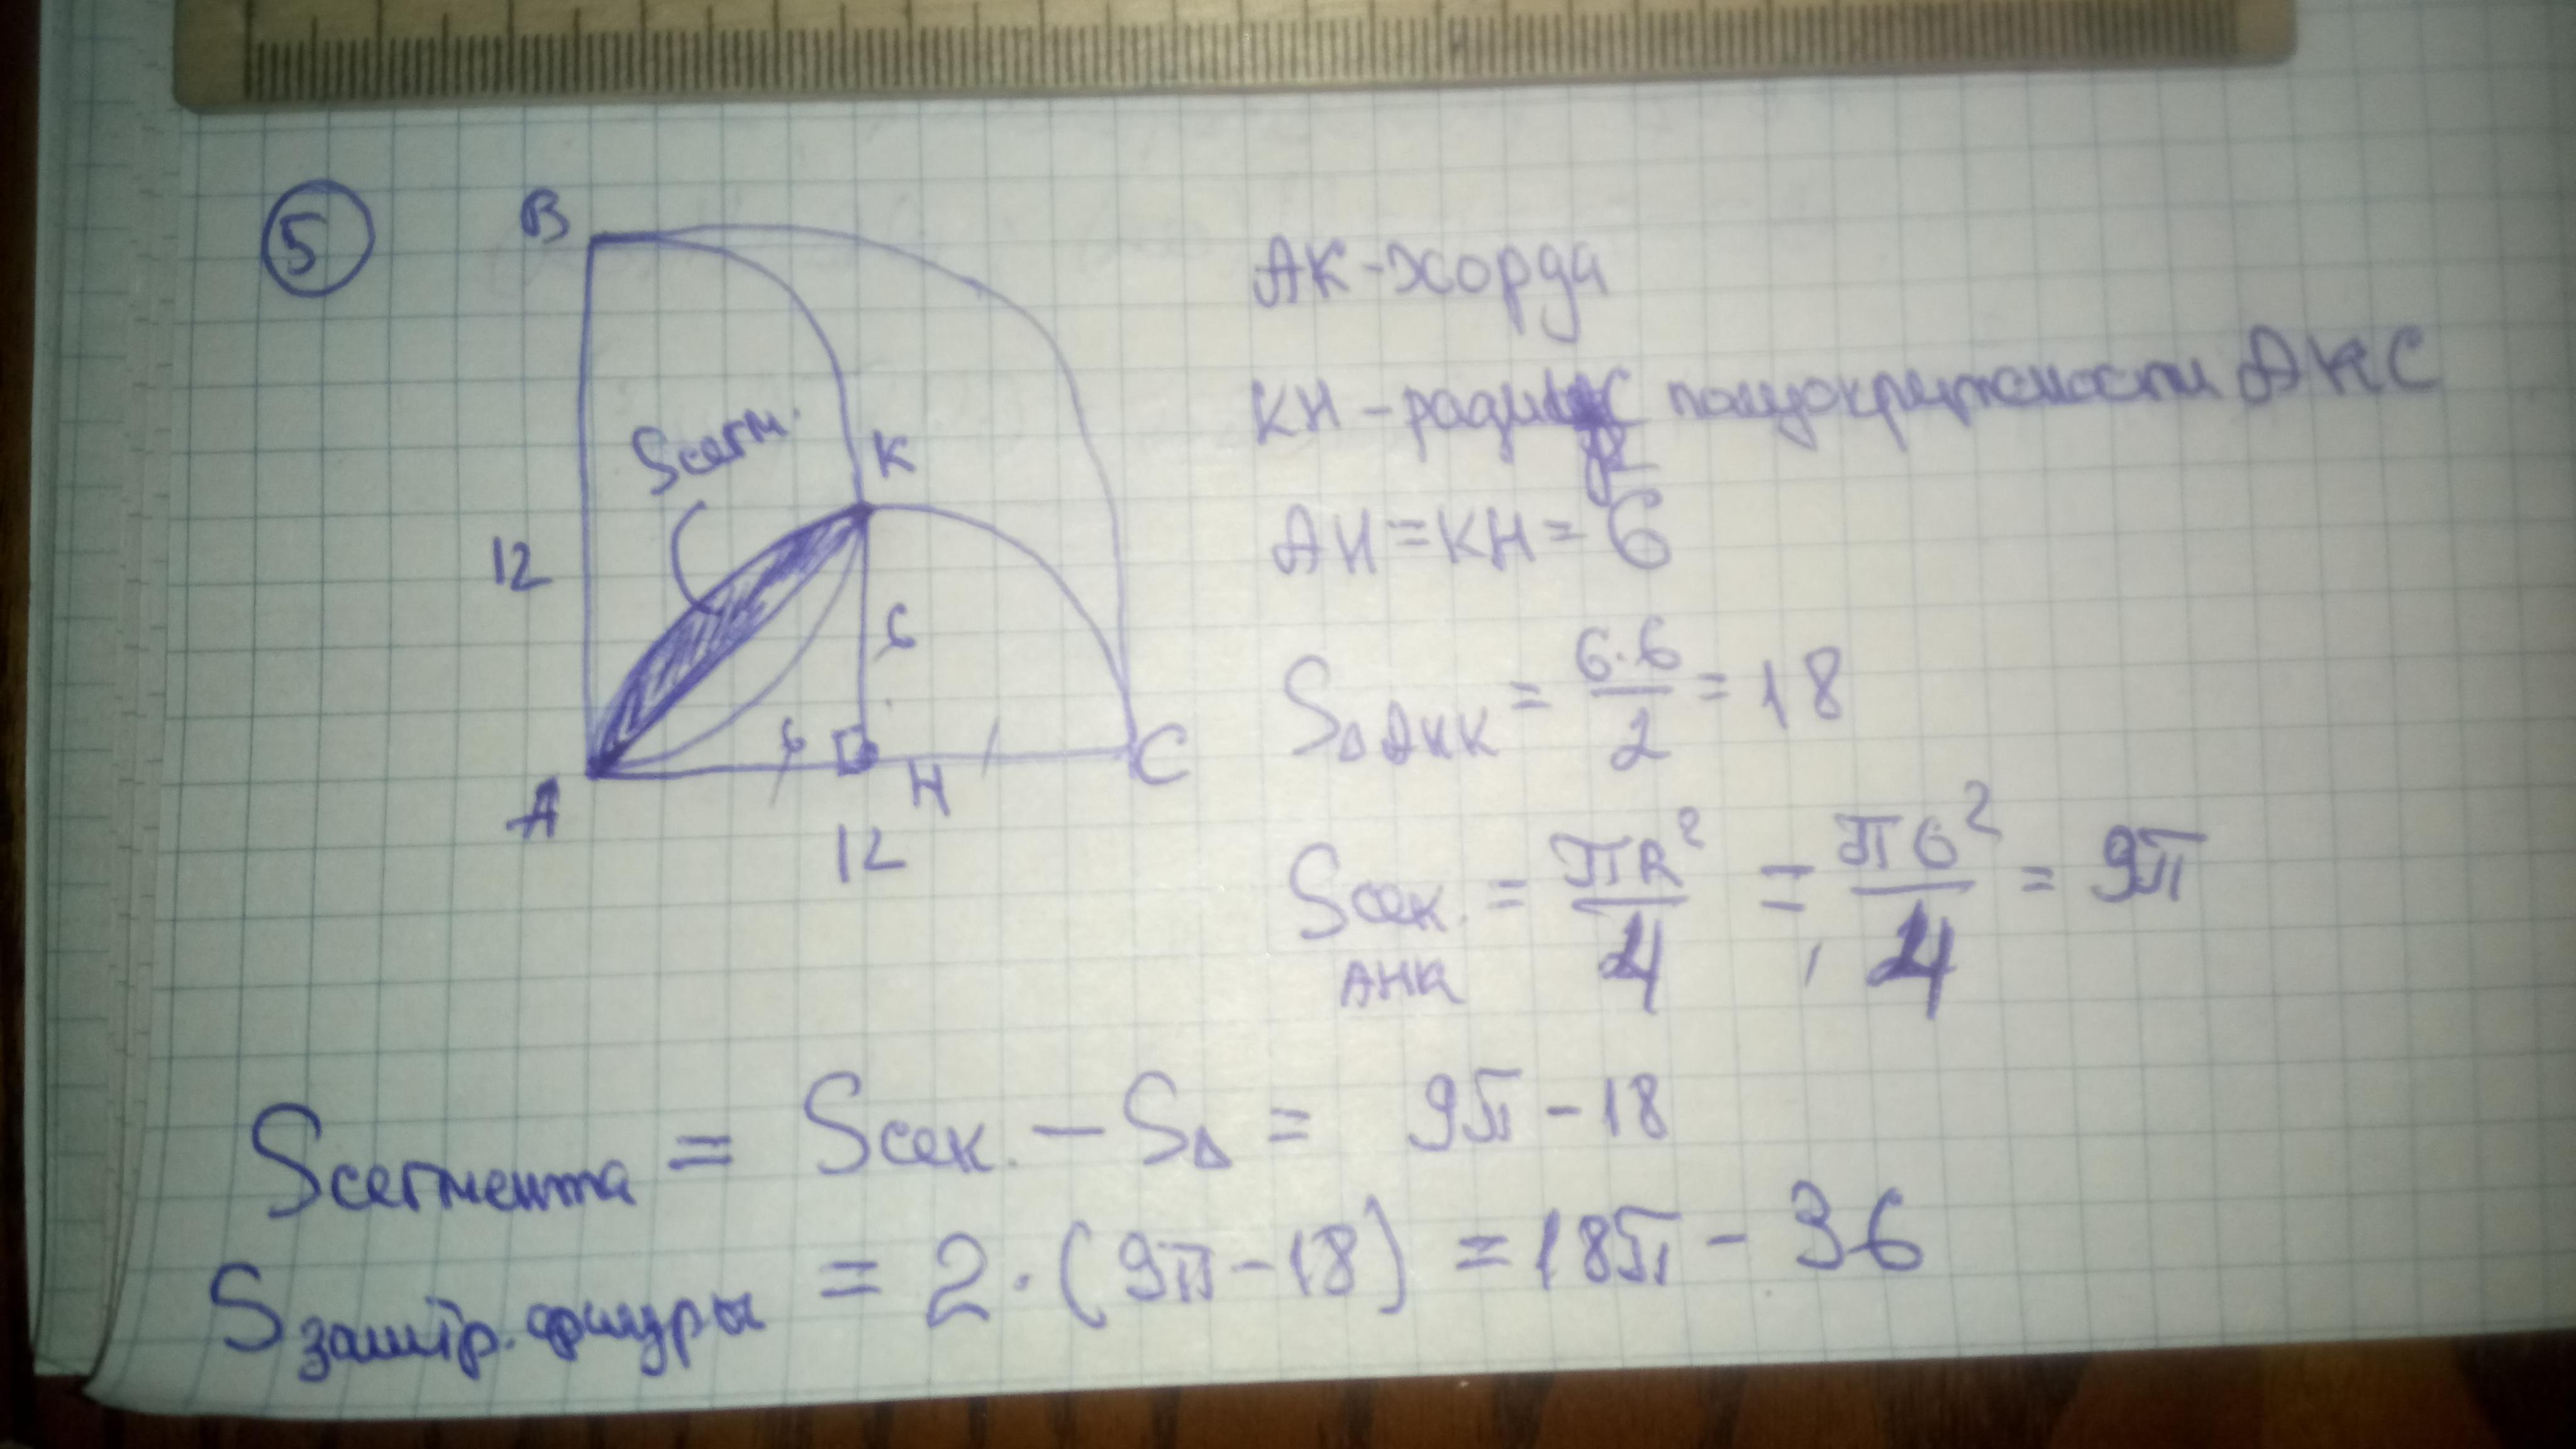 5
B
Sсегм.
K
12
6
6
A
H
C
12
AK-хорда
KH-радиус полуокружности AKC
AH=KH=6
S△AHK = 6·6/2 = 18
Sсек. AHK = πR²/4 = π6²/4 = 9π
Sсегмента = Sсек. - S△ = 9π-18
Sзаштр. фигуры = 2·(9π-18) = 18π-36